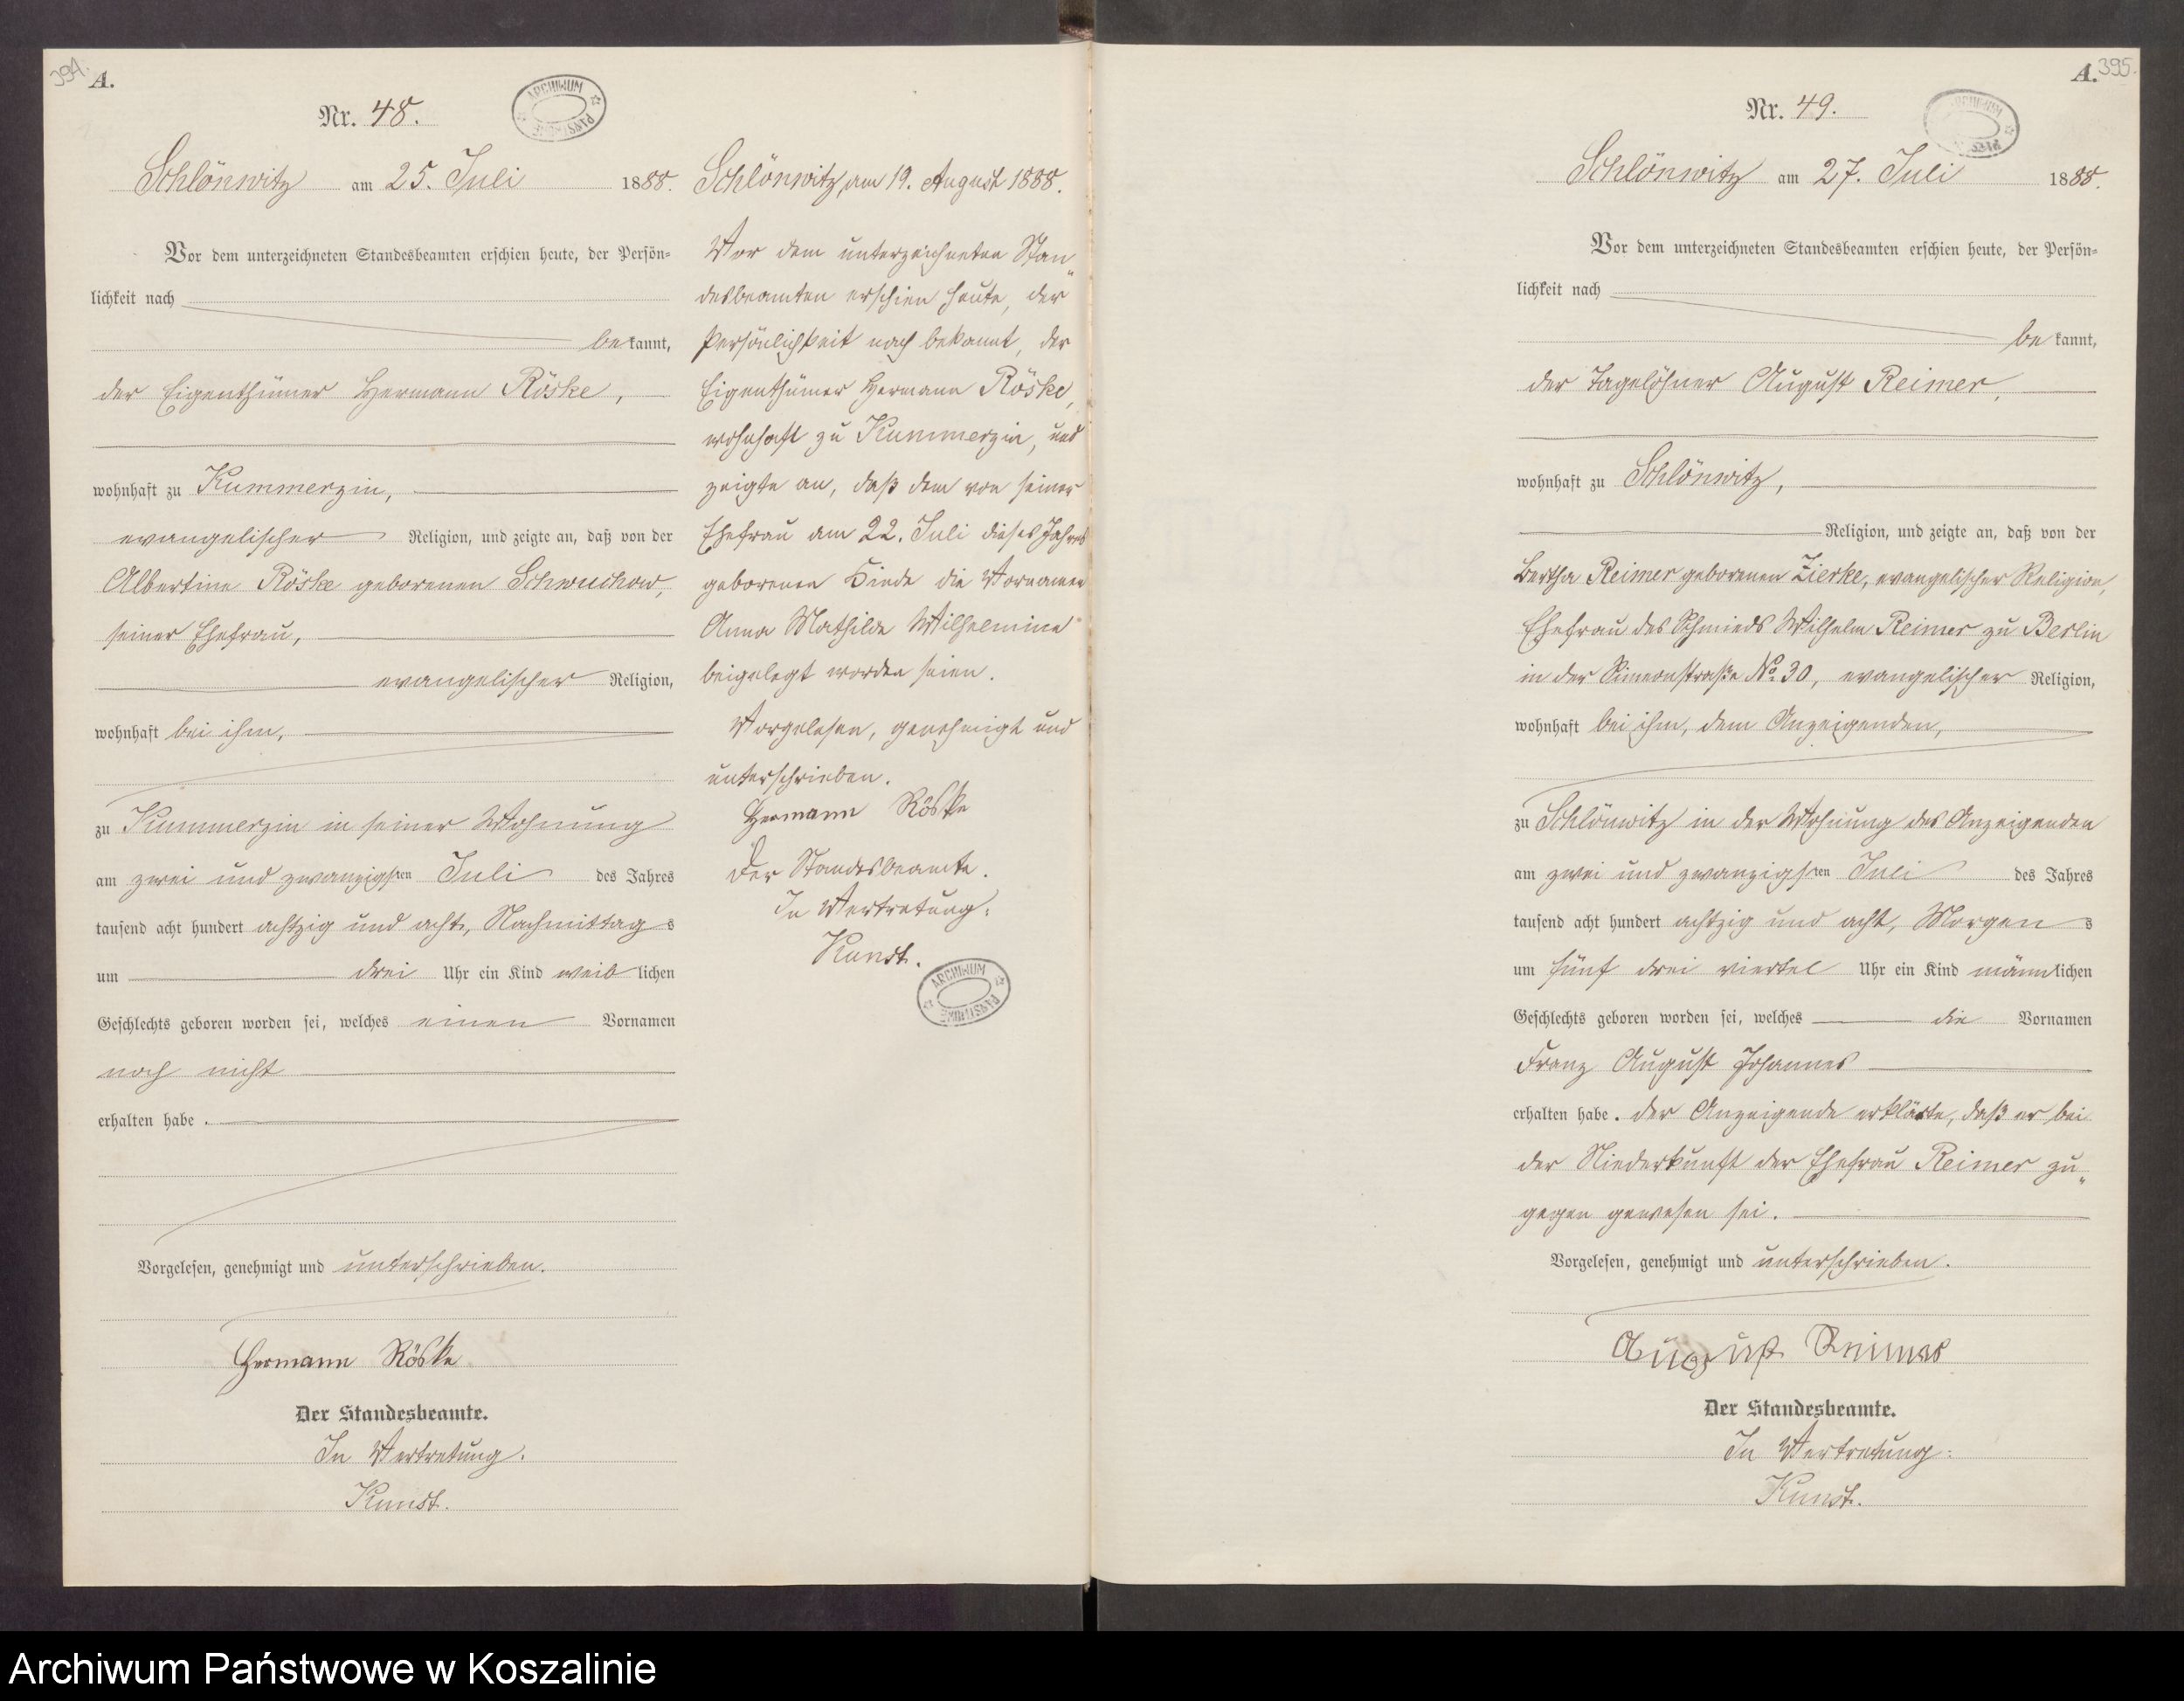 394.
A.
Nr. 48.
ARCHIWUM PAŃSTWOWE
Schlönwitz am 25. Juli 1888.
Vor dem unterzeichneten Standesbeamten erschien heute, der Persön-
lichkeit nach
bekannt,
der Eigenthümer Hermann Röske,
wohnhaft zu Kummerzin,
evangelischer Religion, und zeigte an, daß von der
Albertine Röske geborenen Schwuchow,
seiner Ehefrau,
evangelischer Religion,
wohnhaft bei ihm,
zu Kummerzin in seiner Wohnung
am zwei und zwanzigsten Juli des Jahres
tausend acht hundert achtzig und acht, Nachmittags
um drei Uhr ein Kind weiblichen
Geschlechts geboren worden sei, welches einen Vornamen
noch nicht
erhalten habe.
Vorgelesen, genehmigt und unterschrieben.
Hermann Röske
Der Standesbeamte.
In Vertretung.
Kunst.
Schlönwitz, am 19. August 1888.
Vor dem unterzeichneten Stan„
desbeamten erschien heute, der
Persönlichkeit nach bekannt, der
Eigenthümer Hermann Röske,
wohnhaft zu Kummerzin, und
zeigte an, daß dem von seiner
Ehefrau am 22. Juli dieses Jahres
geborenen Kinde die Vornamen
Anna Mathilde Wilhelmine
beigelegt worden seien.
Vorgelesen, genehmigt und
unterschrieben.
Hermann Röske
Der Standesbeamte.
In Vertretung:
Kunst.
ARCHIWUM PAŃSTWOWE
A.
395.
Nr. 49.
Schlönwitz am 27. Juli 1888.
Vor dem unterzeichneten Standesbeamten erschien heute, der Persön-
lichkeit nach
bekannt,
der Tagelöhner August Reimer,
wohnhaft zu Schlönwitz,
Religion, und zeigte an, daß von der
Bertha Reimer geborenen Zierke, evangelischer Religion,
Ehefrau des Schmieds Wilhelm Reimer zu Berlin
in der Simeonstraße No. 30, evangelischer Religion,
wohnhaft bei ihm, dem Anzeigenden,
zu Schlönwitz in der Wohnung des Anzeigenden
am zwei und zwanzigsten Juli des Jahres
tausend acht hundert achtzig und acht, Morgens
um fünf drei viertel Uhr ein Kind männlichen
Geschlechts geboren worden sei, welches die Vornamen
Franz August Johannes
erhalten habe. Der Anzeigende erklärte, daß er bei
der Niederkunft der Ehefrau Reimer zu„
gegen gewesen sei.
Vorgelesen, genehmigt und unterschrieben.
August Reimer
Der Standesbeamte.
In Vertretung:
Kunst.
Archiwum Państwowe w Koszalinie